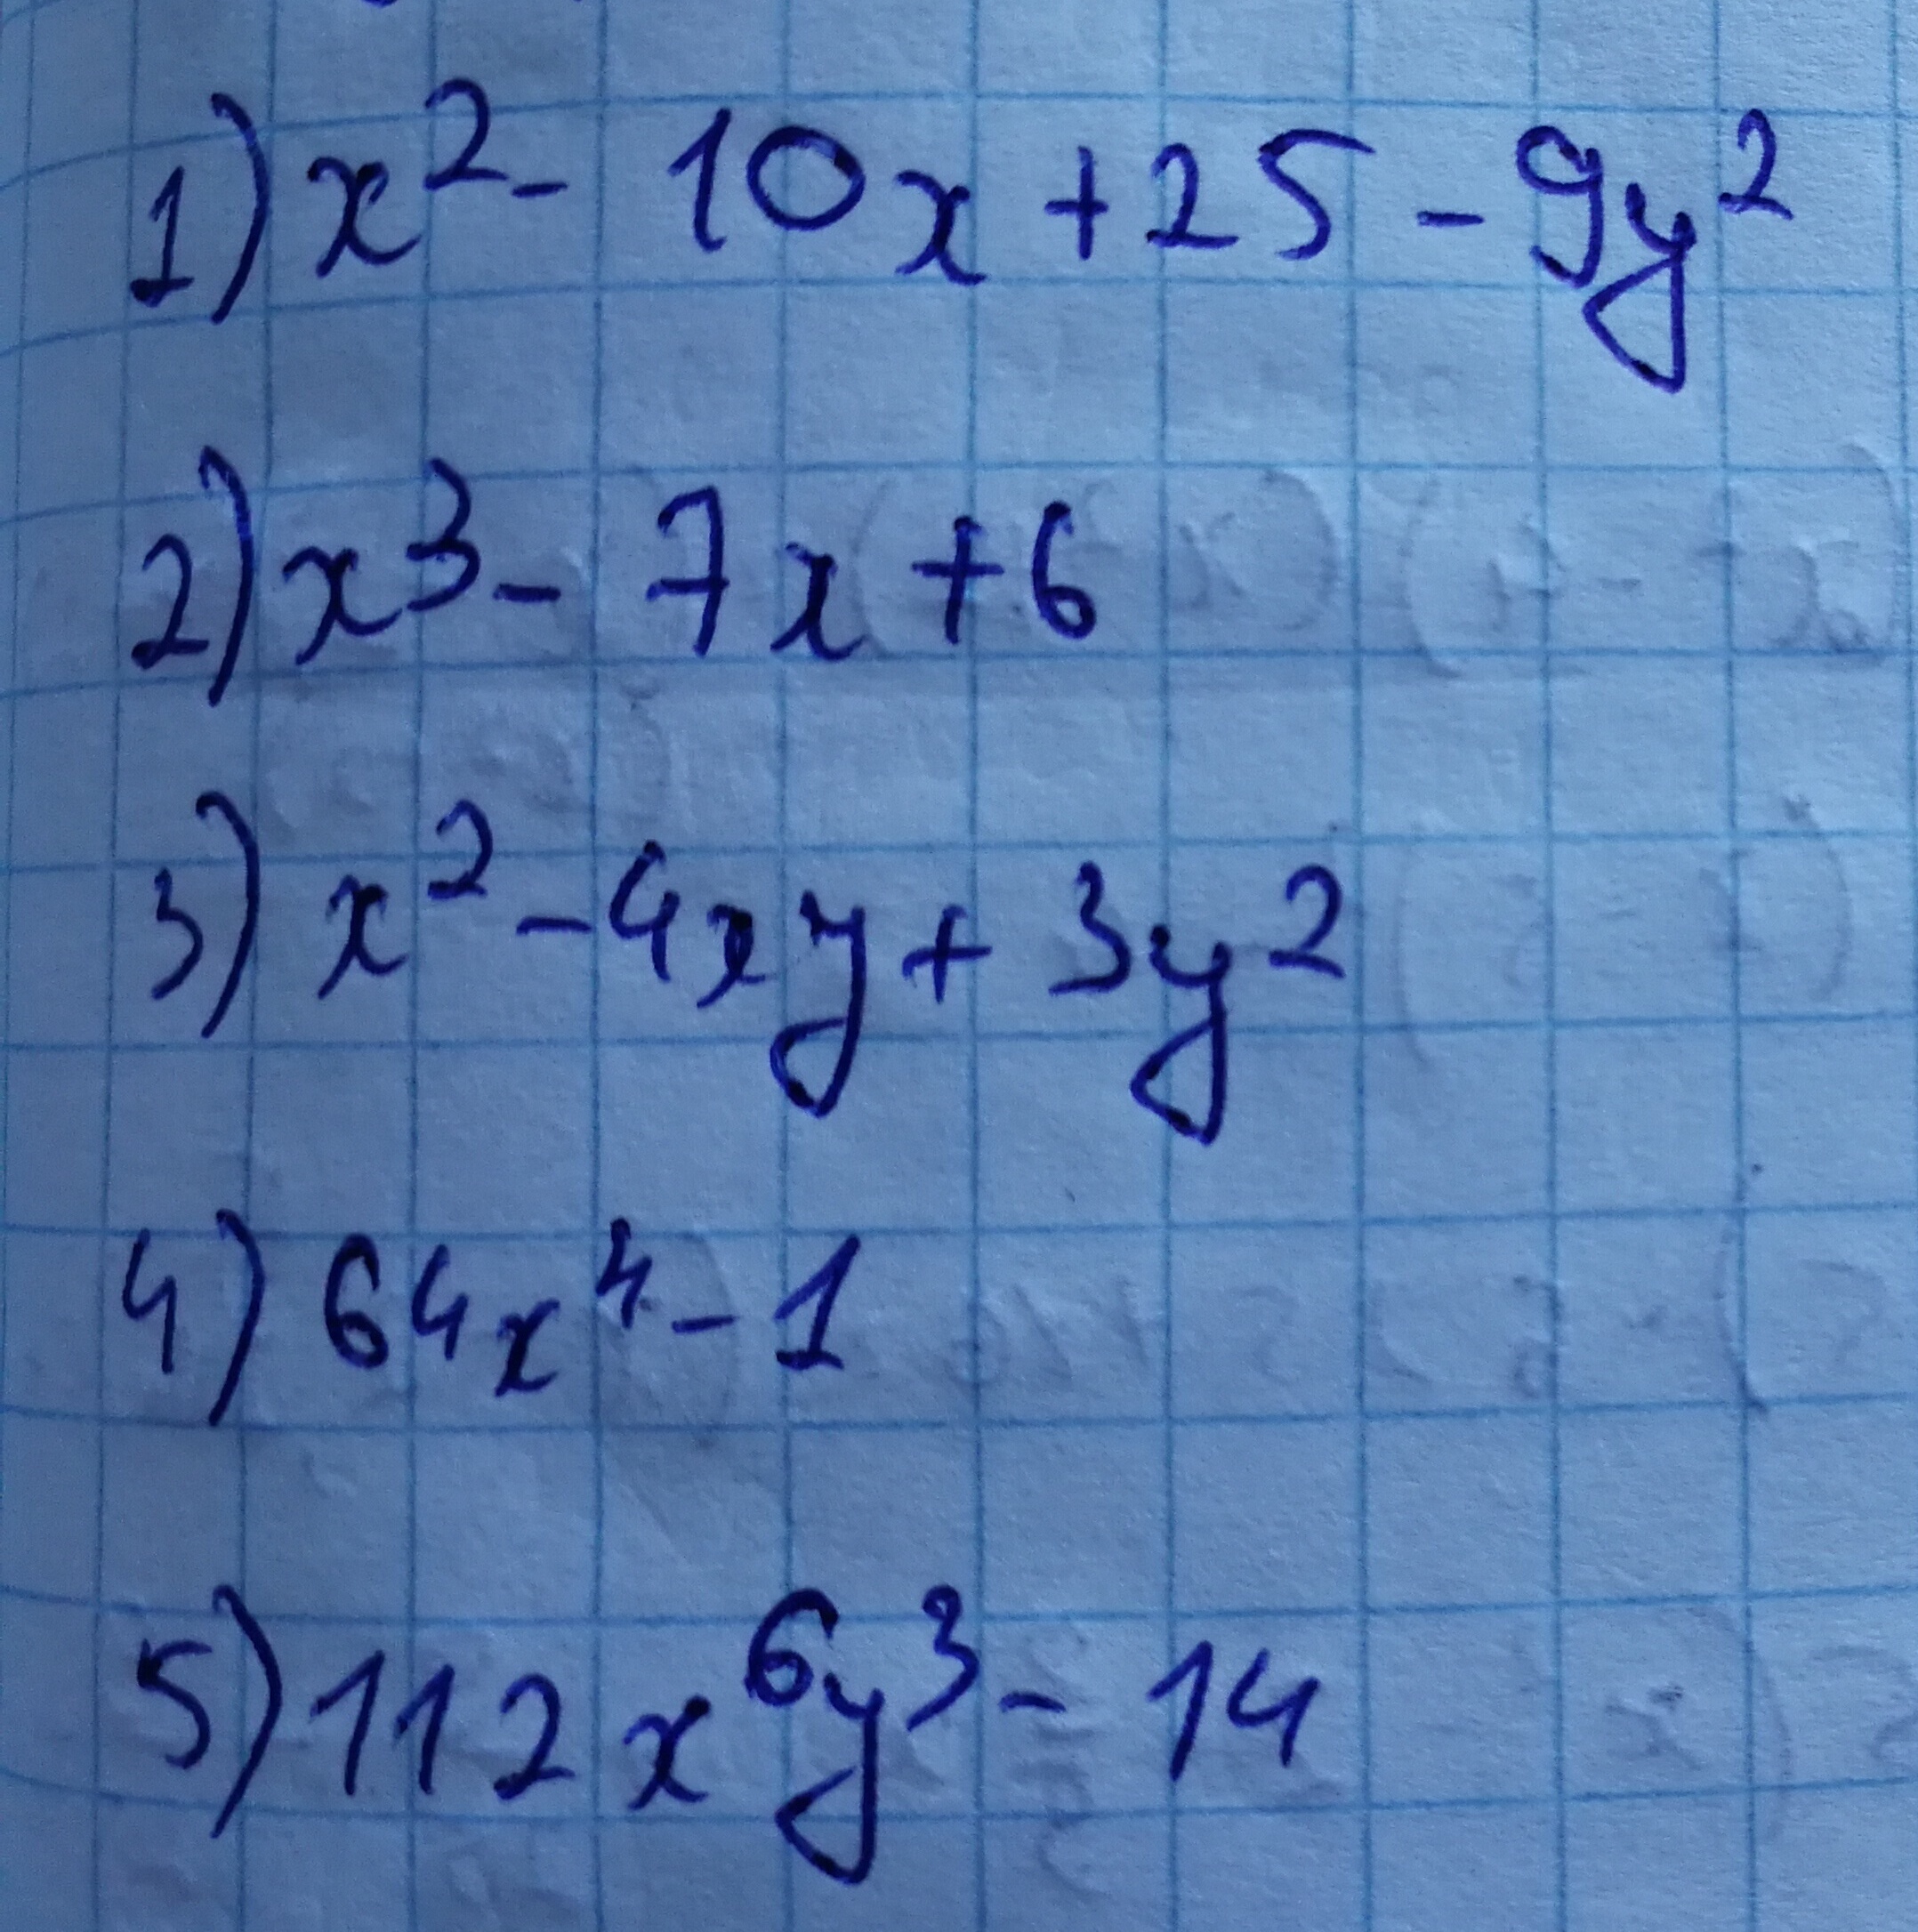 1) x² - 10x + 25 - 9y²
2) x³ - 7x + 6
3) x² - 4xy + 3y²
4) 64x⁴ - 1
5) 112x⁶y³ - 14